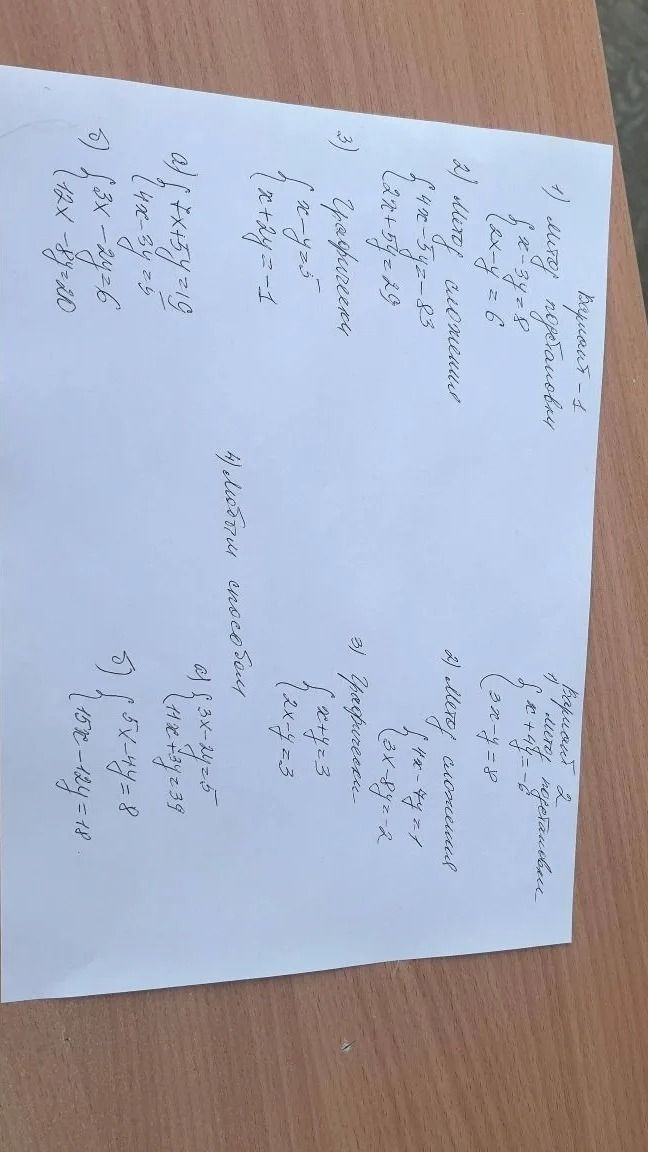 Вариант - 1
1) Метод подстановки
{ x - 3y = 8
2x - y = 6
2) Метод сложения
{ 4x - 5y = -83
2x + 5y = 29
3) Графически
{ x - y = 5
x + 2y = -1
а) { 7x + 5y = 19
4x - 3y = 5
б) { 3x - 2y = 6
12x - 8y = 20
4) Любым способом
Вариант 2
1) Метод подстановки
{ x + 4y = -6
3x - y = 8
2) Метод сложения
{ 4x - 4y = 1
3x - 8y = -2
3) Графически
{ x + y = 3
2x - y = 3
а) { 3x - 2y = 5
11x + 3y = 39
б) { 5x - 4y = 8
15x - 12y = 18.